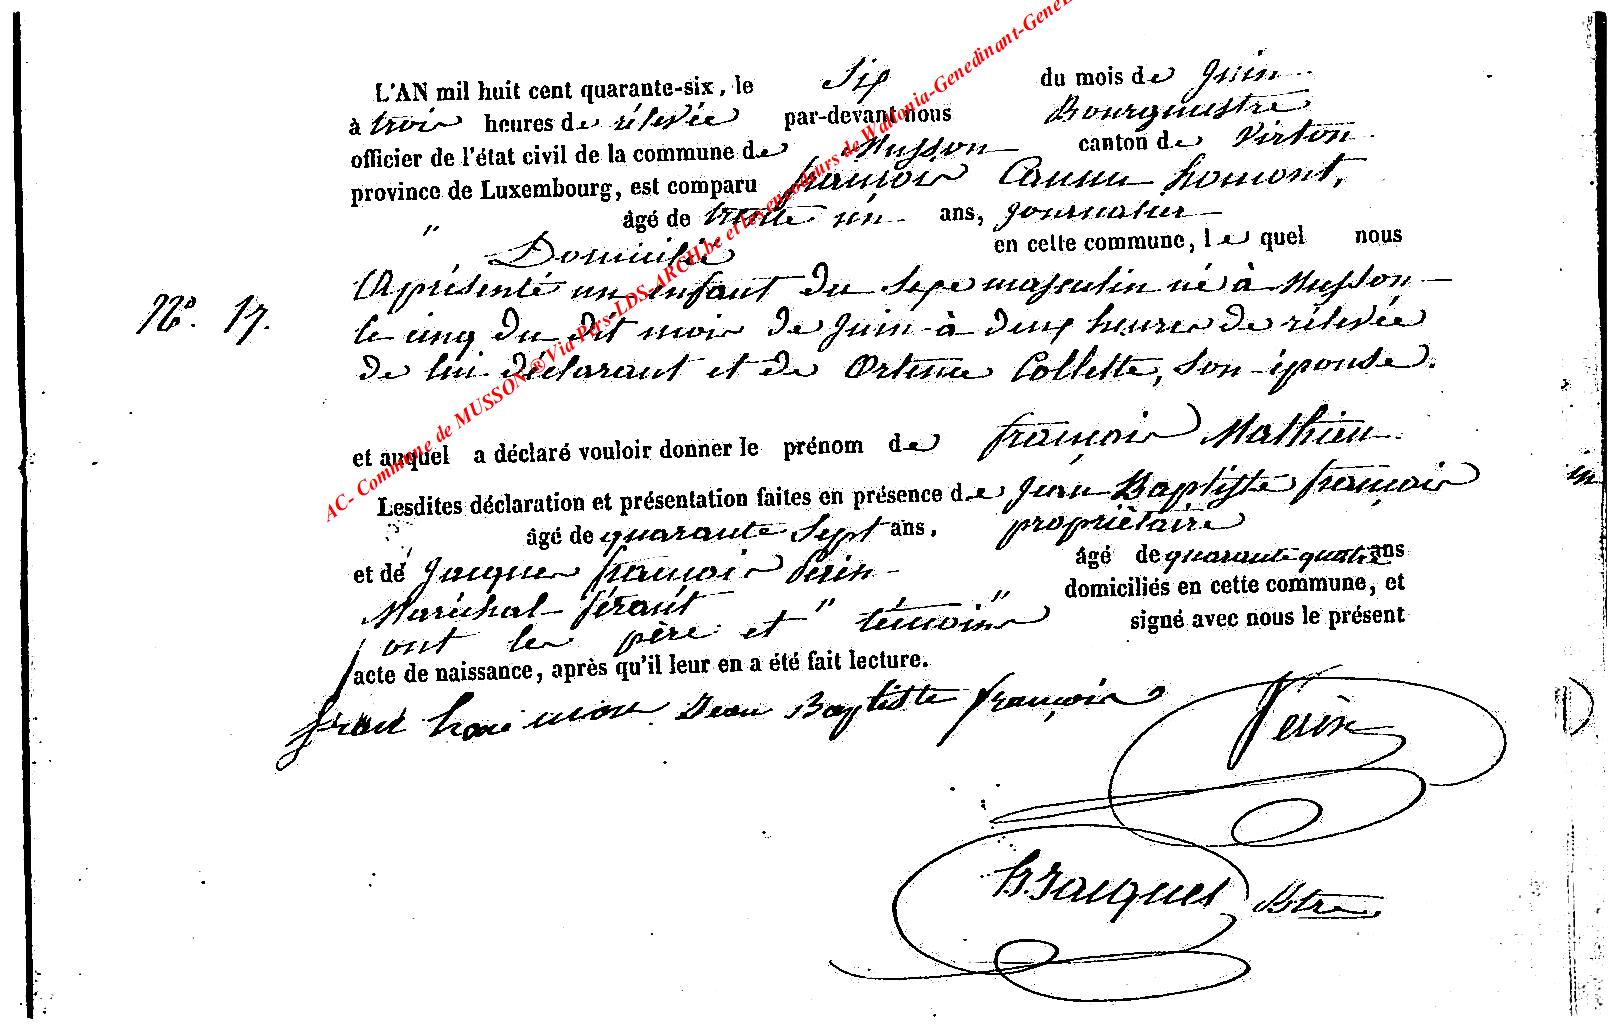 L'AN mil huit cent quarante-six, le Six du mois de Juin
à trois heures de rélevée par-devant nous Bourgmestre
officier de l'état civil de la commune de Musson canton de Virton
province de Luxembourg, est comparu françois homont,
" âgé de trente un ans, Journalier
Domicilié en cette commune, lequel nous
Aprésenté un enfant du sexe masculin né à Musson
No. 17. le cinq du dit mois de Juin à deux heures de rélevée
de lui déclarant et de Ortense Collette, son épouse.
et auquel a déclaré vouloir donner le prénom de françois Mathieu
Lesdites déclaration et présentation faites en présence de Jean Baptiste françois
âgé de quarante sept ans, propriètaire
et de Jacques françois Perin âgé de quarante quatre ans
Maréchal férant " " domiciliés en cette commune, et
ont les père et témoins signé avec nous le présent
acte de naissance, après qu'il leur en a été fait lecture.
Jean Baptiste françois Perin
Jacques Btre
AC- Commune de MUSSON @Via Pers-LDS-ARCH.be et les encodeurs de Wallonia-Genedinant-GeneL